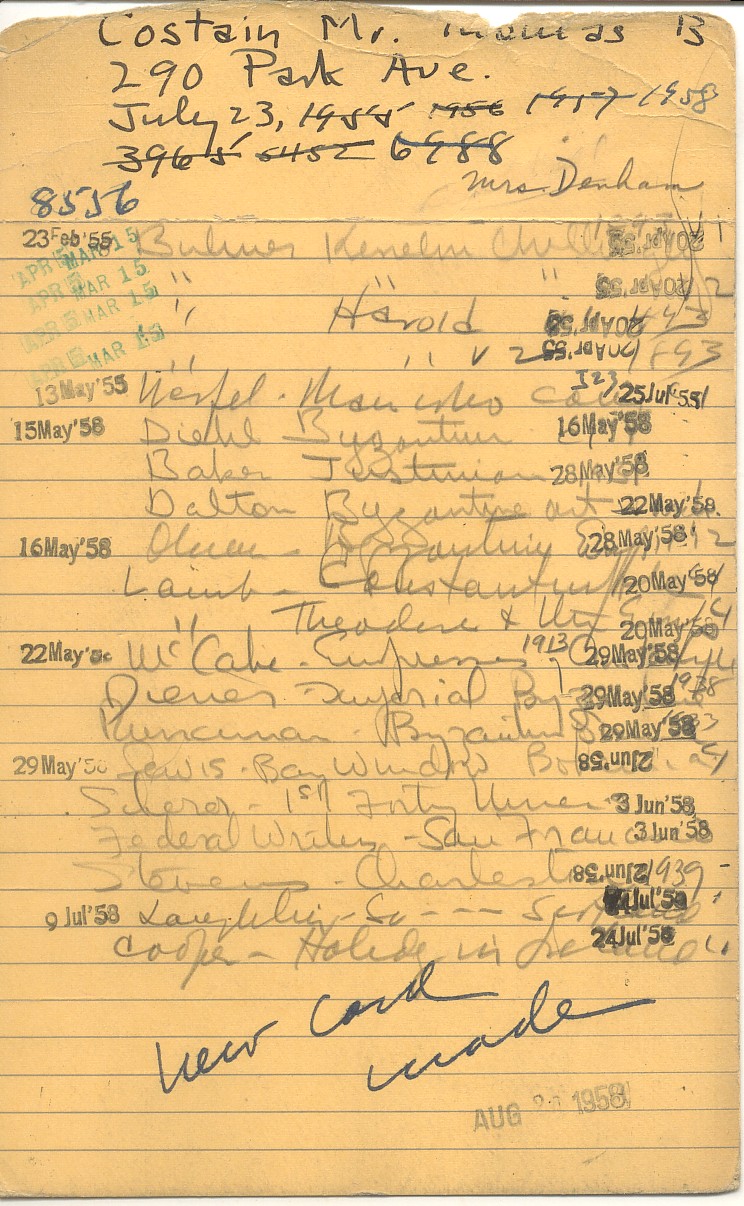 Costain Mr. Thomas B
290 Park Ave.
July 23, 1955 1956 1957 1958
3965 5452 6988
Mrs. Denham
8556
23 Feb'55 Bulwer 20Apr'55
APR 5 MAR 15
" " " 20Apr'55 2
APR 5 MAR 15
" Harold 20Apr'55
APR 5 MAR 15
" " v 2 20Apr'55 1893
APR 5 MAR 15
13May'55 Werfel - 25Jul'55
15May'58 Diehl Byzantium 16May'58
Baker Justinian 28May'58
Dalton Byzantine art 22May'58
16May'58 Oman - Byzantine 28May'58
Lamb - Constantinople 20May'58
" Theodora & the Em 20May'58
22May'58 McCabe - Empresses 1913 29May'58
Diener - Imperial Byz 29May'58 1938
Runciman - Byzantine 29May'58
29May'58 Lewis - Bay Window Bohemia 12Jun'58
Scherer - 1st Forty Niner 3 Jun'58
Federal Writers - San Franc 3 Jun'58
Stevens - Charlest 12Jun'58 1939
9 Jul'58 Laughlin - So --- 24Jul'58
Cooper - Holiday in 24Jul'58
new card
made
AUG 1958